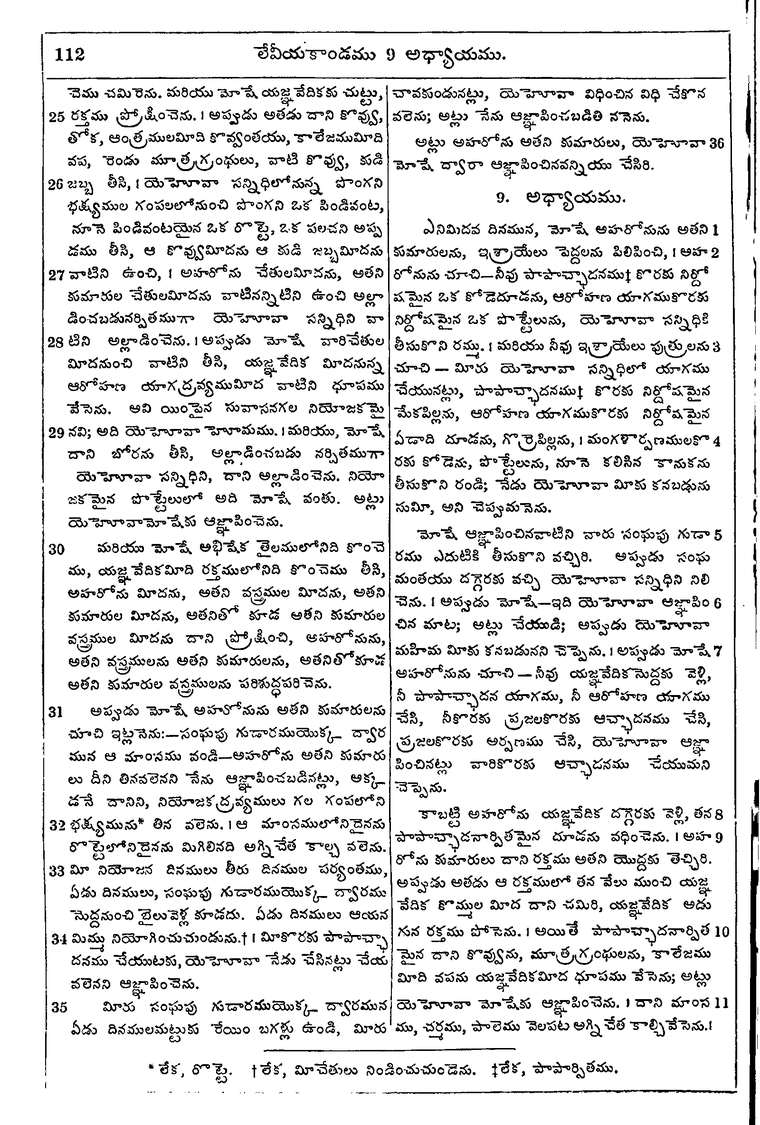 112 లేవీయకాండము 9 అధ్యాయము.
చెము చమిరెను. మరియు మోషే యజ్ఞవేదికకు చుట్టు,
25 రక్తము ప్రోక్షించెను. । అప్పుడు అతడు దాని కొవ్వు,
తోక, ఆంత్రములమీది కొవ్వంతయు, కాలేజముమీది
వప, రెండు మూత్రగ్రంథులు, వాటి కొవ్వు, కుడి
26 జబ్బ తీసి, । యెహోవా సన్నిధిలోనున్న పొంగని
భక్ష్యముల గంపలలోనుంచి పొంగని ఒక పిండివంట,
నూనె పిండివంటయైన ఒక రొట్టె, ఒక పలచని అప్ప
డము తీసి, ఆ కొవ్వుమీదను ఆ కుడి జబ్బమీదను
27 వాటిని ఉంచి, । అహరోను చేతులమీదను, అతని
కుమారుల చేతులమీదను వాటినన్నిటిని ఉంచి అల్లా
డించబడునర్పితముగా యెహోవా సన్నిధిని వా
28 టిని అల్లాడించెను. । అప్పుడు మోషే వారిచేతుల
మీదనుంచి వాటిని తీసి, యజ్ఞవేదిక మీదనున్న
ఆరోహణ యాగద్రవ్యముమీద వాటిని ధూపము
వేసెను. అవి యింపైన సువాసనగల నియోజకమై
29 నవి; అది యెహోవా హోమము. । మరియు, మోషే
దాని బోరను తీసి, అల్లాడించబడు నర్పితముగా
యెహోవా సన్నిధిని, దాని అల్లాడించెను. నియో
జకమైన పొట్టేలులో అది మోషే వంతు. అట్లు
యెహోవామోషేకు ఆజ్ఞాపించెను.
30 మరియు మోషే అభిషేక తైలములోనిది కొంచె
ము, యజ్ఞవేదికమీది రక్తములోనిది కొంచెము తీసి,
అహరోను మీదను, అతని వస్త్రముల మీదను, అతని
కుమారుల మీదను, అతనితో కూడ అతని కుమారుల
వస్త్రముల మీదను దాని ప్రోక్షించి, అహరోనును,
అతని వస్త్రములను అతని కుమారులను, అతనితోకూడ
అతని కుమారుల వస్త్రములను పరిశుద్ధపరిచెను.
31 అప్పుడు మోషే అహరోనును అతని కుమారులను
చూచి ఇట్లనెను:—సంఘపు గుడారముయొక్క ద్వార
మున ఆ మాంసము వండి—అహరోను అతని కుమారు
లు దీని తినవలెనని నేను ఆజ్ఞాపించబడినట్లు, అక్క
డనే దానిని, నియోజకద్రవ్యములు గల గంపలోని
32 భక్ష్యమును* తిన వలెను. । ఆ మాంసములోనిదైనను
రొట్టెలోనిదైనను మిగిలినది అగ్నిచేత కాల్చ వలెను.
33 మీ నియోజన దినములు తీరు దినముల పర్యంతము,
ఏడు దినములు, సంఘపు గుడారముయొక్క ద్వారము
నొద్దనుంచి బైలువెళ్ల కూడదు. ఏడు దినములు ఆయన
34 మిమ్ము నియోగించుచుండును.† । మీకొరకు పాపాచ్ఛా
దనము చేయుటకు, యెహోవా నేడు చేసినట్లు చేయ
వలెనని ఆజ్ఞాపించెను.
35 మీరు సంఘపు గుడారముయొక్క ద్వారమున
ఏడు దినములమట్టుకు రేయిం బగళ్లు ఉండి, మీరు
చావకుండునట్లు, యెహోవా విధించిన విధి చేకొన
వలెను; అట్లు నేను ఆజ్ఞాపించబడితి ననెను.
అట్లు అహరోను అతని కుమారులు, యెహోవా 36
మోషే ద్వారా ఆజ్ఞాపించినవన్నియు చేసిరి.
9. అధ్యాయము.
ఎనిమిదవ దినమున, మోషే అహరోనును అతని 1
కుమారులను, ఇశ్రాయేలు పెద్దలను పిలిపించి, । అహ 2
రోనును చూచి—నీవు పాపాచ్ఛాదనము‡ కొరకు నిర్దో
షమైన ఒక కోడెదూడను, ఆరోహణ యాగముకొరకు
నిర్దోషమైన ఒక పొట్టేలును, యెహోవా సన్నిధికి
తీసుకొని రమ్ము. । మరియు నీవు ఇశ్రాయేలు పుత్రులను 3
చూచి — మీరు యెహోవా సన్నిధిలో యాగము
చేయునట్లు, పాపాచ్ఛాదనము‡ కొరకు నిర్దోషమైన
మేకపిల్లను, ఆరోహణ యాగముకొరకు నిర్దోషమైన
ఏడాది దూడను, గొర్రెపిల్లను, । మంగళార్పణములకొ 4
రకు కోడెను, పొట్టేలును, నూనె కలిసిన కానుకను
తీసుకొని రండి; నేడు యెహోవా మీకు కనబడును
సుమీ, అని చెప్పుమనెను.
మోషే ఆజ్ఞాపించినవాటిని వారు సంఘపు గుడా 5
రము ఎదుటికి తీసుకొని వచ్చిరి. అప్పుడు సంఘ
మంతయు దగ్గెరకు వచ్చి యెహోవా సన్నిధిని నిలి
చెను. । అప్పుడు మోషే—ఇది యెహోవా ఆజ్ఞాపిం 6
చిన మాట; అట్లు చేయుడి; అప్పుడు యెహోవా
మహిమ మీకు కనబడునని చెప్పెను. । అప్పుడు మోషే 7
అహరోనును చూచి — నీవు యజ్ఞవేదికనొద్దకు వెళ్లి,
నీ పాపాచ్ఛాదన యాగము, నీ ఆరోహణ యాగము
చేసి, నీకొరకు ప్రజలకొరకు ఆచ్ఛాదనము చేసి,
ప్రజలకొరకు అర్పణము చేసి, యెహోవా ఆజ్ఞా
పించినట్లు వారికొరకు ఆచ్ఛాదనము చేయుమని
చెప్పెను.
కాబట్టి అహరోను యజ్ఞవేదిక దగ్గెరకు వెళ్లి, తన 8
పాపాచ్ఛాదనార్పితమైన దూడను వధించెను. । అహ 9
రోను కుమారులు దాని రక్తము అతని యొద్దకు తెచ్చిరి.
అప్పుడు అతడు ఆ రక్తములో తన వేలు ముంచి యజ్ఞ
వేదిక కొమ్ముల మీద దాని చమిరి, యజ్ఞవేదిక అడు
గున రక్తము పోసెను. । అయితే పాపాచ్ఛాదనార్పిత 10
మైన దాని కొవ్వును, మూత్రగ్రంథులను, కాలేజము
మీది వపను యజ్ఞవేదికమీద ధూపము వేసెను; అట్లు
యెహోవా మోషేకు ఆజ్ఞాపించెను. । దాని మాంస 11
ము, చర్మము, పాలెము వెలపట అగ్నిచేత కాల్చివేసెను.।
* లేక, రొట్టె. † లేక, మీచేతులు నిండించుచుండెను. ‡లేక, పాపార్పితము.